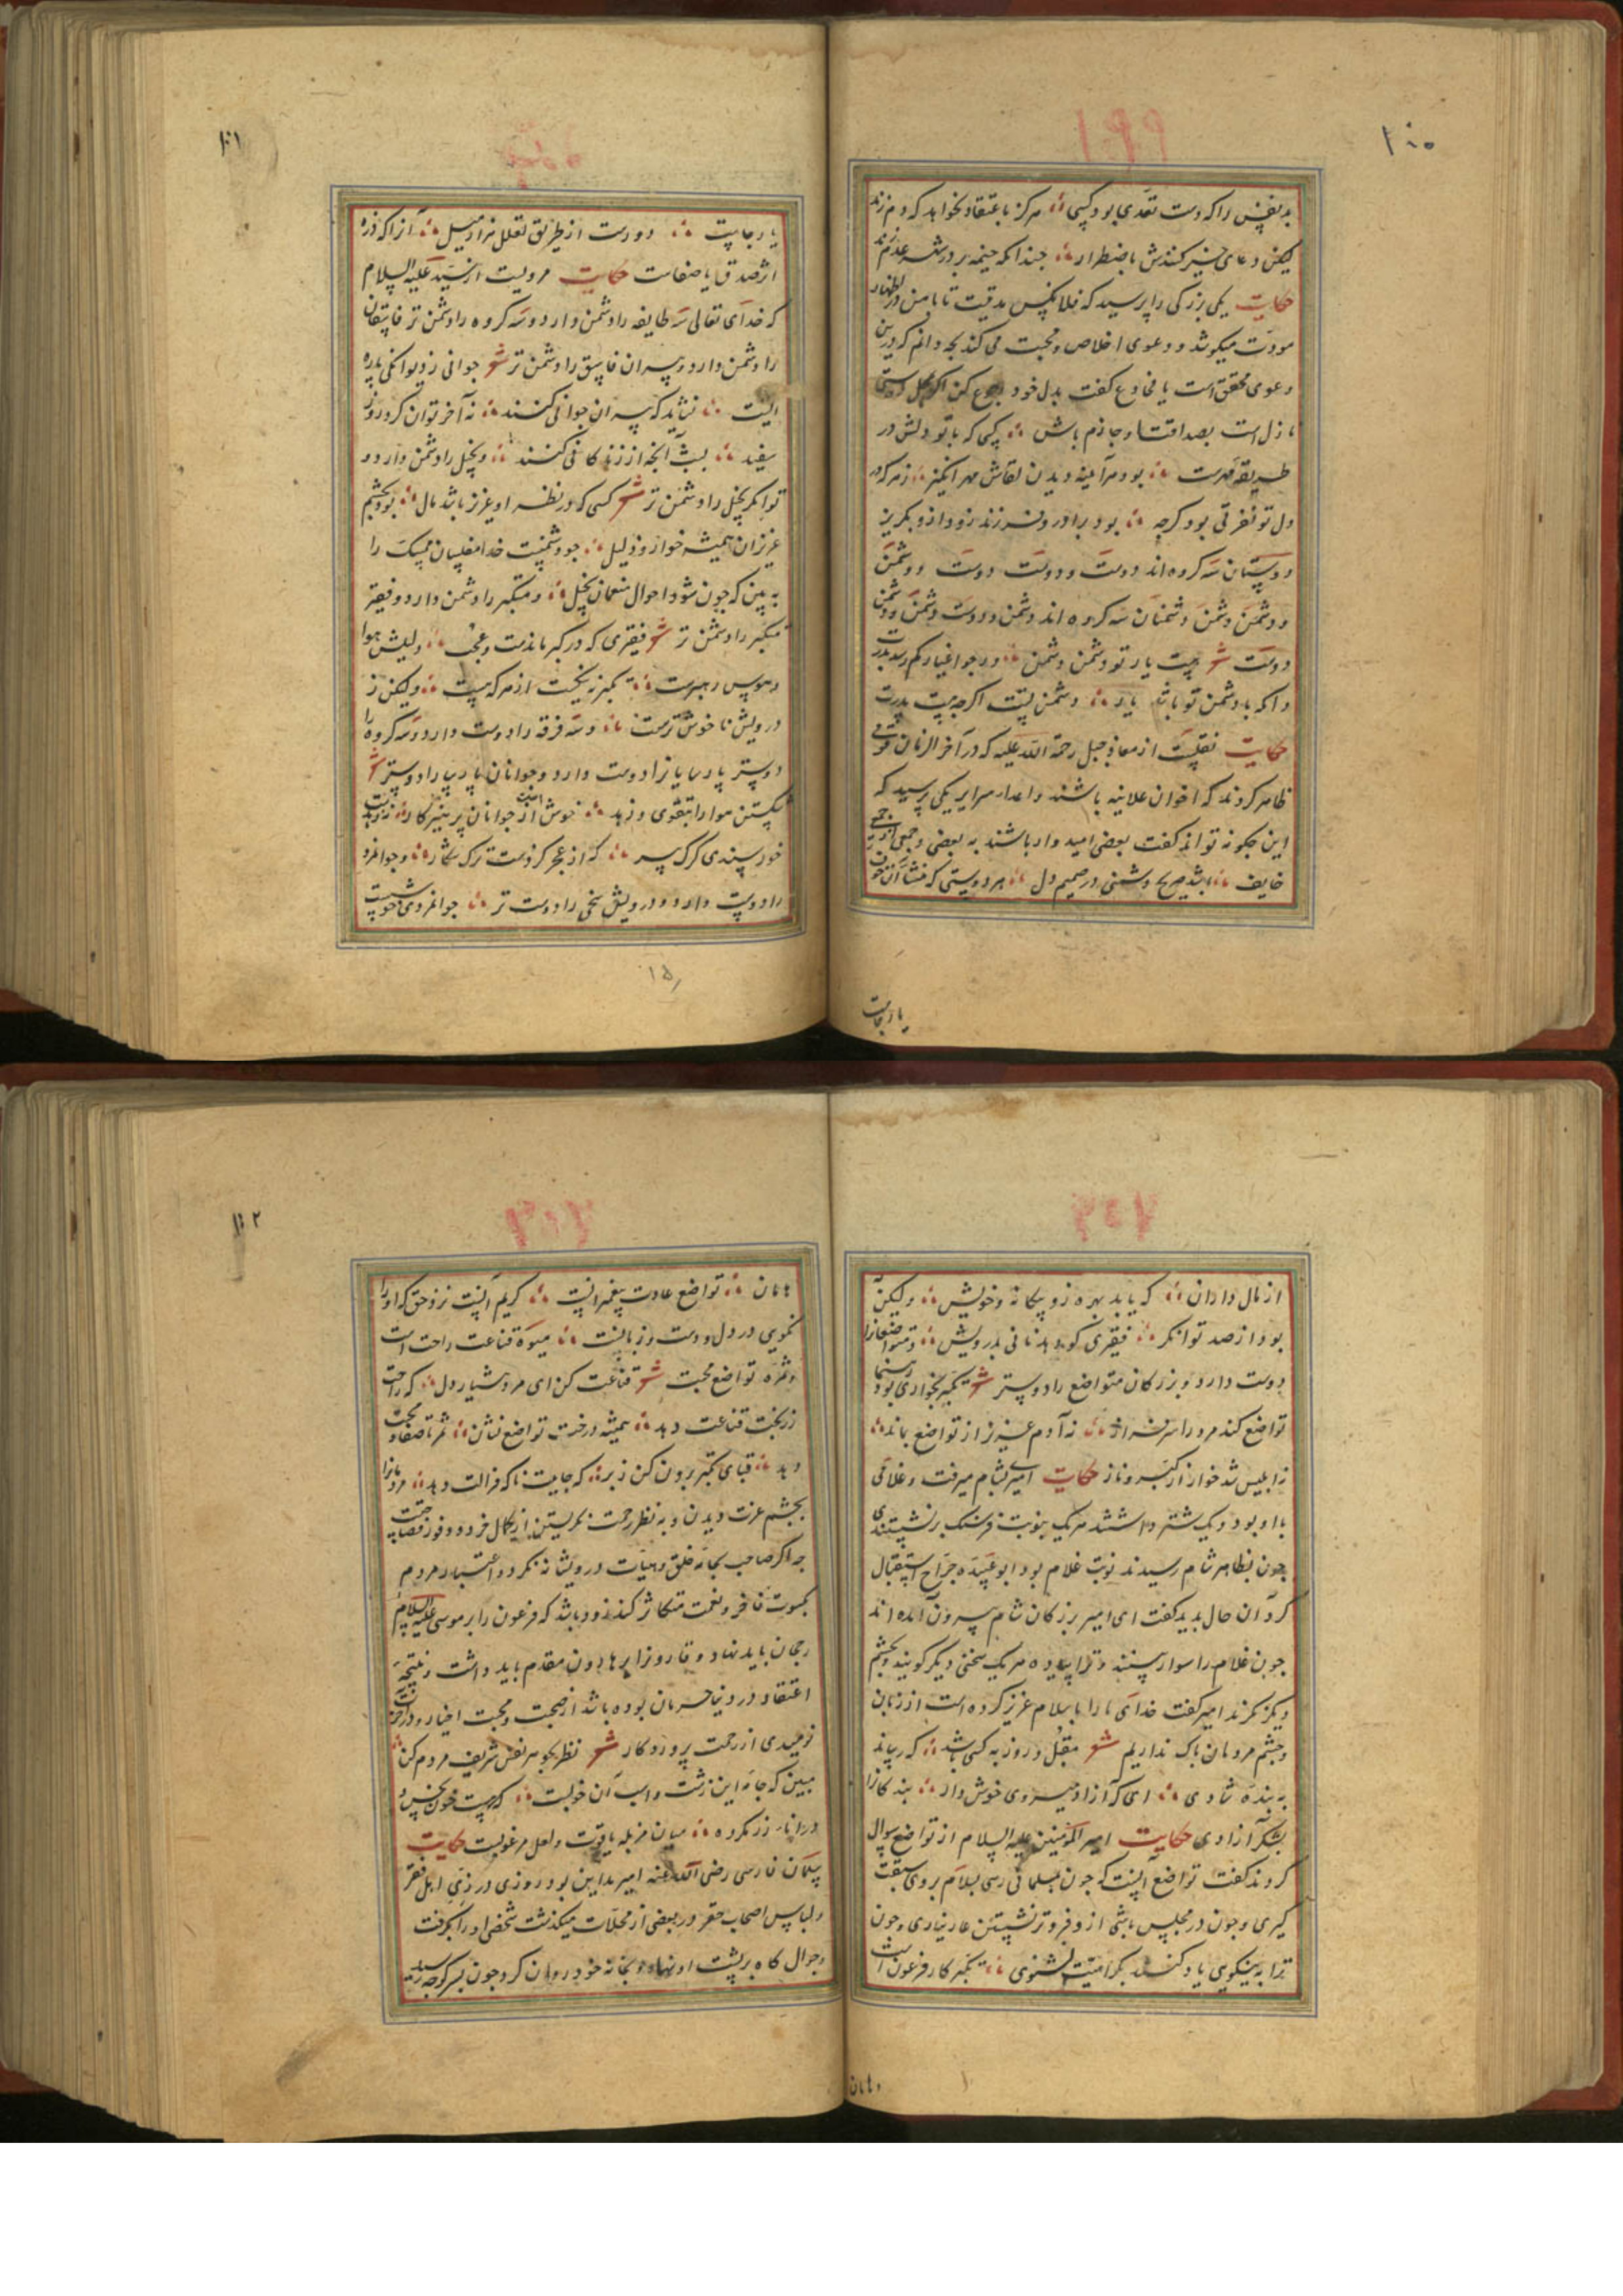 ۱۹۹
۱۰۰
بدنفس را که دست تعدی بود کسی هرگز باعتقاد نخواهد که دم زند
لیکن دعای خیر کنندش باضطرار چندانکه خیمه بر در شهر عدم زند
حکایت یکی بزرگی را پرسید که فلانکس مدتیست تا با من در اظهار
مودت میکوشد و دعوی اخلاص و محبت می کند بچه دانم که درین
دعوی محقق است یا مخادع گفت بدل خود رجوع کن اگر
نازل است بصداقت او جازم باش کسی که با تو دلش در
طریقه مهرست بود هر آینه دیدن لقاش مهر انگیز ز هر که در
دل تو نفرتی بود گرچه بود برادر و فرزند زود ازو بگریز
دوستان سه گروه اند دوست و دوست دوست و دشمن
دشمن و دشمنان سه گروه اند دشمن و دوست دشمن و دشمن
دوست شعر نیست یار تو دشمن دشمن
وانکه با دشمن تو باشد یار دشمن تست اگرچه هست پدرت
حکایت نقلست از معاذ جبل رحمة الله علیه که در آخر الزمان قومی
ظاهر گردند که اخوان علانیه باشند و اعداء سرایر یکی پرسید که
این چگونه تواند گفت بعضی امید وار باشند به بعضی و جمعی از جمعی
خایف باشد صریح دشمنی در صمیم دل هر دوستی که منشأ آن خوف
یا رجاست
۱۰۱
یا رجاست دورست از طریق تعلل مزاد میل آنرا که ذره
از صدق یا صفاست حکایت مرویست از سید علیه السلام
که خدای تعالی سه طایفه را دشمن دارد و سه گروه را دشمن تر فاسقان
را دشمن دارد و پیران فاسق را دشمن تر شعر جوانی ز دیوانگی پاره
ایست نشاید که پیران جوانی کنند نه آخر توان کرد روز
سفید بشب آنچه از زندگانی کنند و بخیل را دشمن دارد و
توانگر بخیل را دشمن تر شعر کسی که در نظر او عزیز باشد مال بود بچشم
عزیزان همیشه خوار و ذلیل چو دشمنست خدا مفلسان ممسک را
به بین که چون شود احوال منعمان بخیل و متکبر را دشمن دارد و فقیر
متکبر را دشمن تر شعر فقیری که در کبر ماندست و عجب دلیلش هوا
و هوس رهبرست تکبر نه نیکست از هر که هست ولیکن ز
درویش ناخوش ترست و سه فرقه را دوست دارد و سه گروه را
دوستر پارسایانرا دوست دارد و جوانان پارسا را دوستر شعر
شکستن هوا را بتقوی و زهد خوش است از جوانان پرهیزکار
خود پسندی گرگ پیر که از عجز کردست ترک شکار و جوانمرد
را دوست دارد و درویش سخی را دوست تر جوانمردی
۱۵
از مال داران که یابد بهره زو بیگانه و خویش ولیکن
بود از صد توانگر فقیری کو دهد نانی بدرویش و متواضعانرا
دوست دارد و بزرگان متواضع را دوستر شعر تکبر بخواری بود رهنما
تواضع کند مرد را سرفراز نه آدم عزیز از تواضع بماند
نه ابلیس شد خوار از کبر و ناز حکایت امیری بشام میرفت و غلامی
با او بود و یک شتر داشتند هر یک بنوبت فرسنگ بر نشستندی
چون بظاهر شام رسیدند نوبت غلام بود ابو عبیده جراح استقبال
کرد آن حال بدید گفت ای امیر بزرگان شام بیرون آمده اند
چون غلام را سوار بینند و ترا پیاده هر یک سخنی دیگر گویند و بچشم
دیگر نگرند امیر گفت خدای ما را باسلام عزیز کرده است از زبان
و چشم مردمان باک نداریم شعر مقبل و روز به کسی باشد که رساند
به بنده شادی ای که آزاد میروی خوش دار بندگانرا
بشکر آزادی حکایت امیر المؤمنین علیه السلام از تواضع سوال
کردند گفت تواضع آنست که چون بمسلمانی رسی بسلام بر وی سبقت
گیری و چون در مجلس باشی از فروتر نشستن عار نیاری و چون
ترا به نیکویی یاد کنند بکرامیت شنوی تکبر کار فرعون است
هامان
۱۰۲
هامان تواضع عادت پیغمبرانست کریم آنست نزد حق که او را
نکویی در دل و دست و زبانست میوه قناعت راحت است
و ثمره تواضع محبت شعر قناعت کن ای مرد هشیار دل که راحت
درخت قناعت دهد همیشه درخت تواضع نشان ثمر تا صفا و محبت
دهد قبای تکبر برون کن ز بر که جاییست ناگه مزالت دهد مرد مانرا
بچشم عزت دیدن و به نظر رحمت نگریستن از کمال خرد و وفور فصاحت
چه اگر صاحب بجامه خلق و هیات درویشانه نگرد و اعتبار مردم
بکسوت فاخر و نعمت متکاثر کند زود باشد که فرعون را بر موسی علیه السلام
رجحان باید نهاد و قارونرا بر هارون مقدم باید داشت و نتیجه
اعتقاد در دنیا حرمان بوده باشد از صحبت و محبت اخیار و در آخرت
نومیدی از رحمت پروردگار شعر نظر بجوهر نفس شریف مردم کن
مبین که جامه این زشت و اسب آن خوبست
میان مزبله یاقوت و لعل مرغوبست حکایت
سلمان فارسی رضی الله عنه امیر مداین بود روزی در زی اهل فقر
و لباس اصحاب حقر در بعضی از محلات میگذشت شخصی او را بگرفت
و جوال کاه بر پشت او نهاد و بخانه خود روان کرد چون بسر کوچه رسید